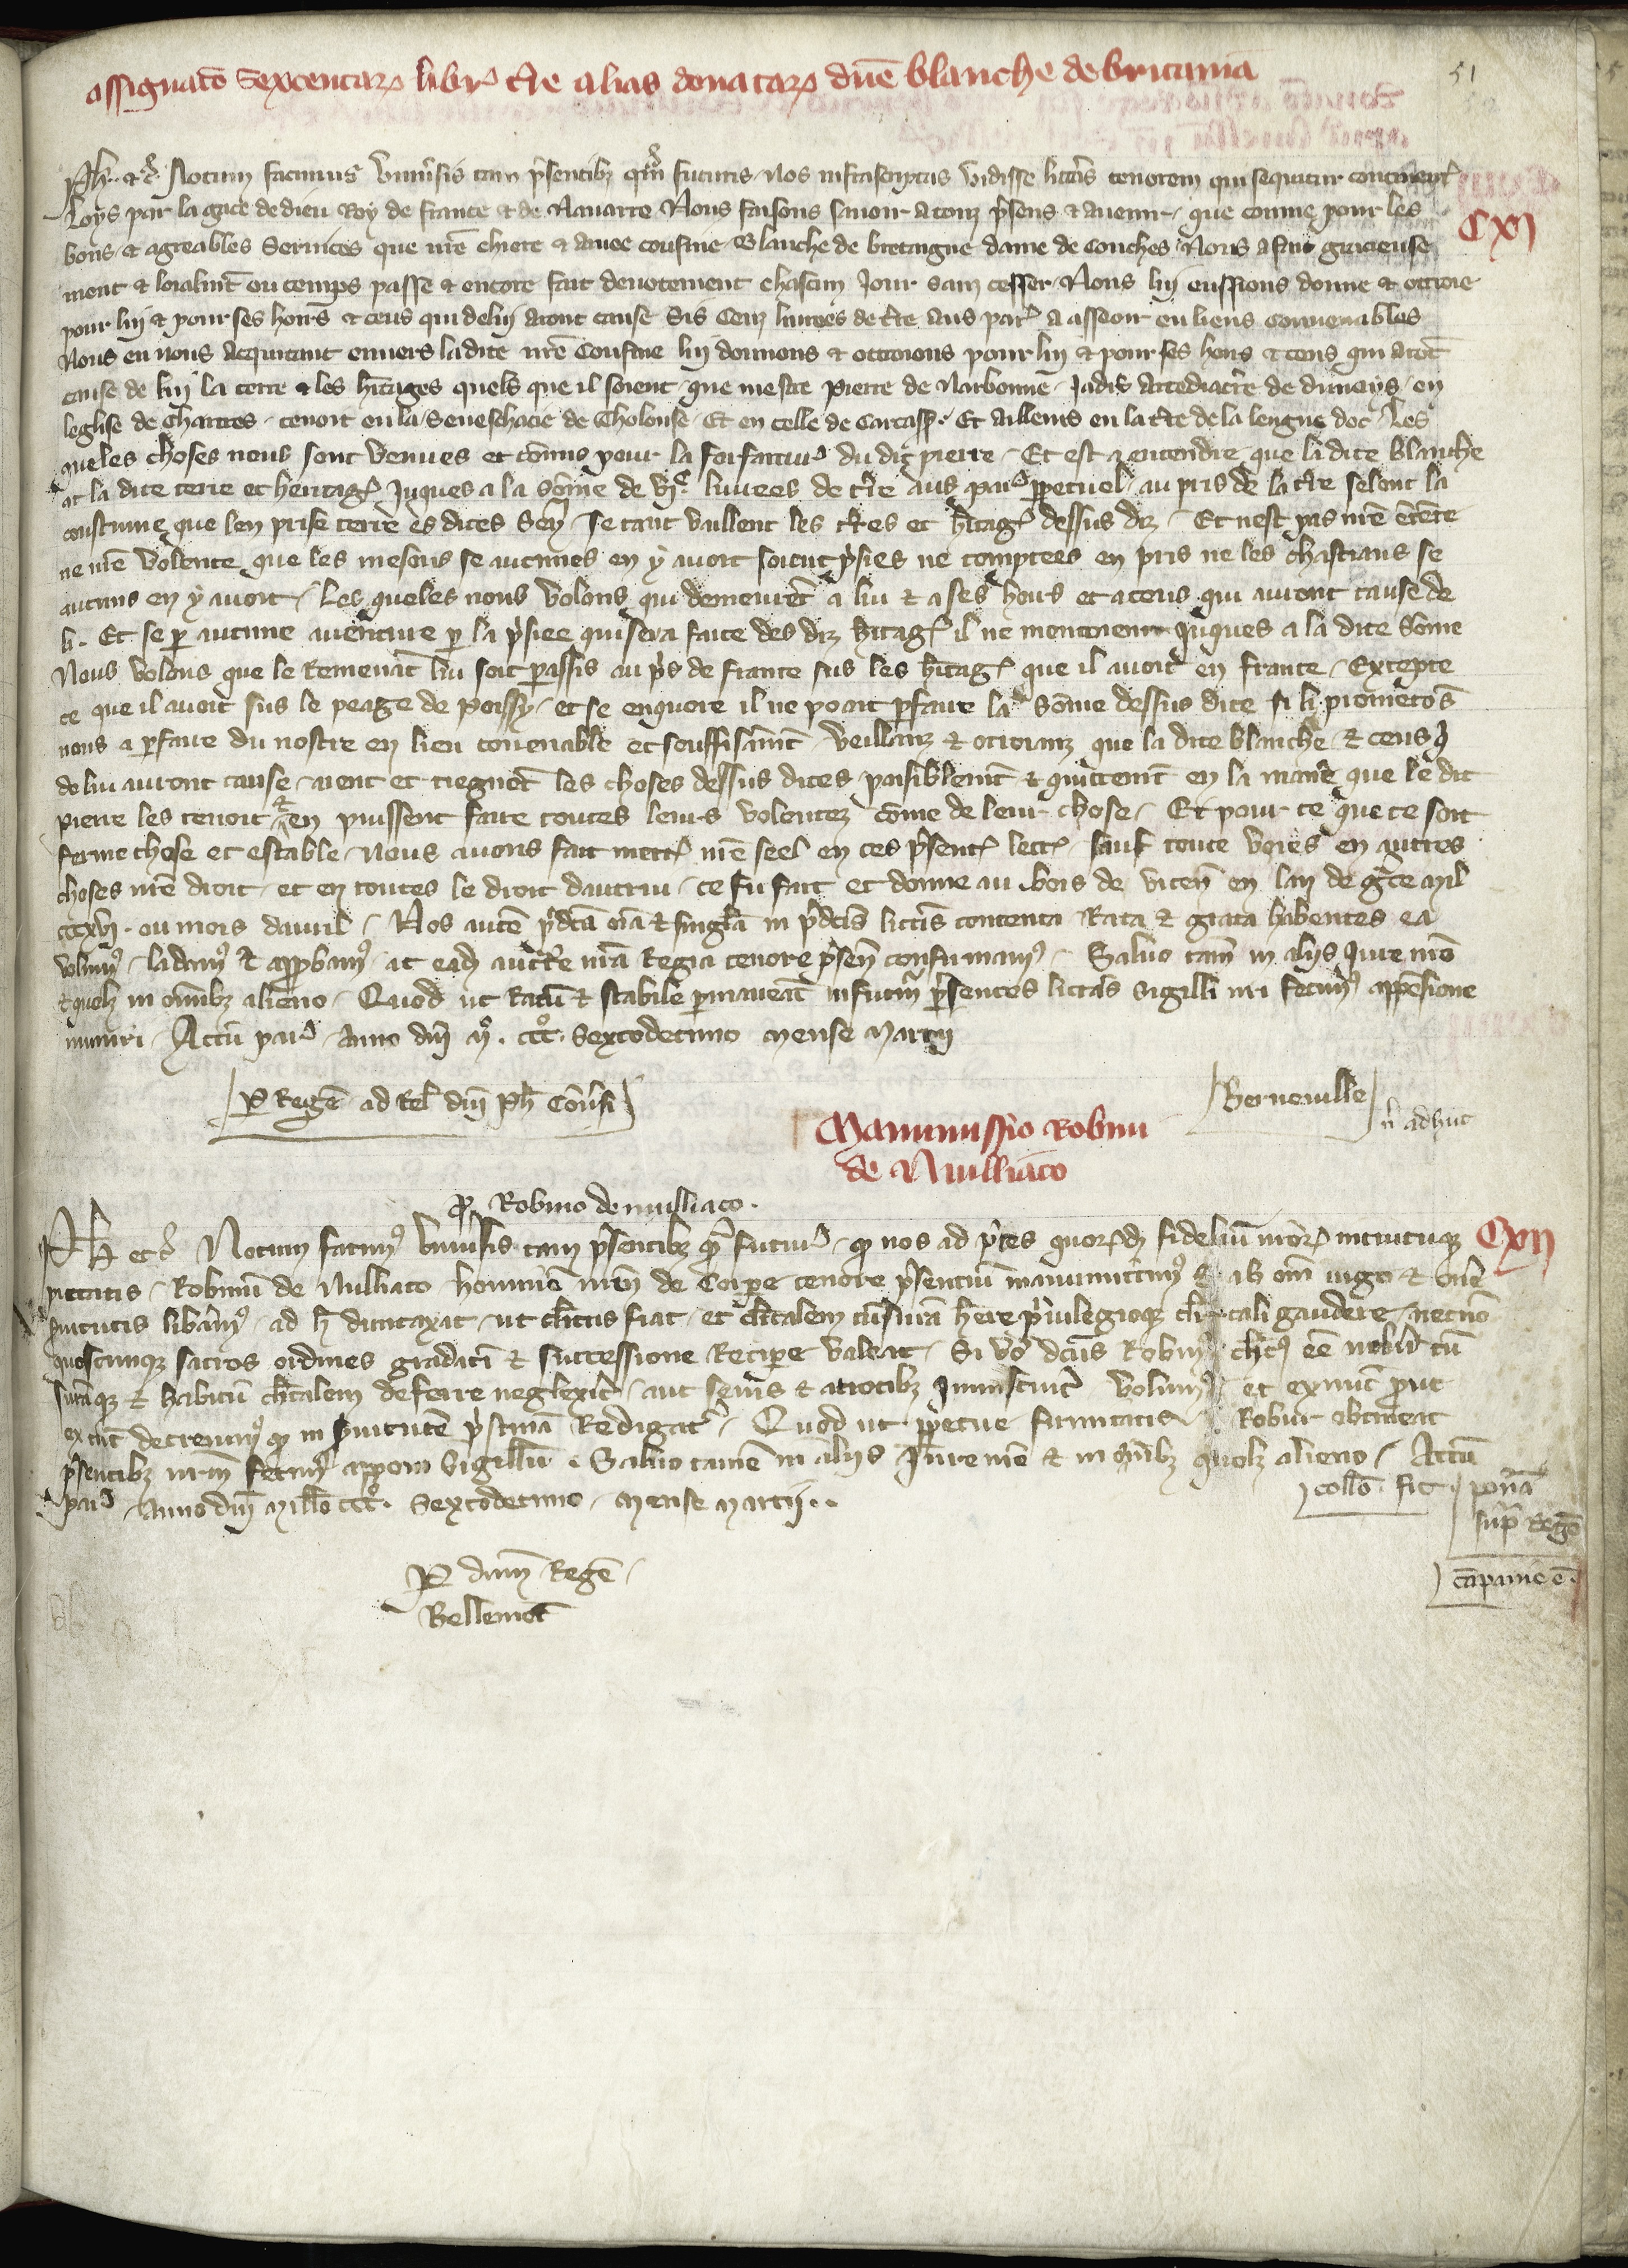 assignato Sexcentar libr tre alias donatar dne blanche de britania
51
Ph. etc. Notum facimus universis tam presentibz qm futuris nos infrascriptas vidisse litteras tenorem qui sequitur continent
CXI
Loys par la grace de dieu Roy de france et de Navarre Nous faisons savoir a touz presens et avenir que comme pour les
bons et agreables services que nre chiere et amee cousine Blanche de bretaigne dame de Conches Nous a fait gracieuse
ment et loialmt ou temps passe et encore fait devotement chascun jour sanz cesser Nous lui eussions donne et ottroie
pour lui et pour ses hoirs et ceus qui de lui aront cause Sis Cenz livrees de tre aus par. a asseoir en liens convenables
Nous en nous acquitant envers ladite nre Cousine lui donnons et ottroions pour lui et pour ses hoirs et ceus qui aront
cause de lui la terre et les hitages quels que il soient que mestre Pierre de Narbonne Jadis arcediacre de duneys en
leglise de Chartres tenoit en la Seneschacie de Tholouse Et en celle de Carcass. Et aillieurs en la tre de la lengue doc Les
queles choses nous sont venues et comis pour la forfaiture du dit pierre Et est a entendre que la dite blanche
at la dite terre et heritag juques a la some de vjc livrees de tre aus par ppetuel au pris de la tre selont la
coustume que len prise terre es dites Sen se tant vaillent les tres et hitag dessus diz Et nest pas nre entente
ne nre volente que les mesons se aucunes en y avoit soient prsies ne comptees en pris ne les chastiaus se
aucuns en y avoit Les queles nous volons qui demeuret a lui et a ses hoirs et a ceus qui auront cause de
li. Et se par aucune aventure par la prisiee qui sera faite des diz hitag il ne montoient juques a la dite some
Nous volons que le Remenat lui soit parassis au pris de france sus les hitag que il avoit en france Excepte
ce que il avoit sus le peage de poissy et se enquore il ne poait pfaire la some dessus dite si li prometos
nous a pfaire du nostre en lieu covenable et souffisamt veillanz et otrianz que la dite blanche et ceus q
de lui auront cause aient et tiegnet les choses dessus dites paisiblemt et quittemt en la manie que le dit
pierre les tenoit et en puissent faire toutes leurs volentez come de leur chose Et pour ce que ce soit
ferme chose et estable nous avons fait mettr nre seel en ces present lettr sauf toute voies en autres
choses nre droit et en toutes le droit dautrui ce fu fait et donne au bois de vicen en lan de gce mil
cccxvj. ou mois davril Nos aute pdcta oia et singla in pdctis litteris contenta Rata et grata habentes ea
volum laudam et approbam ac eadem auctte nra Regia tenore psen confirmam Salvo tam in aliis Jure nro
et quolz in omibz alieno Quod ut Ratu et stabile pmaneat in futurm psentes litteras sigilli nri fecim appensione
muniri Actu par Anno dni mo. ccco. Sextodecimo mense Marcij
P Rege ad Rel dni Ph Coversi
Berneville
n adhuc
Manumissio Robini
de Nulliaco
P Robino de nulliaco.
Ph etc Notum facim universis tam psentibz qm futur q nos ad pces quord fideliu nror intuituqz
CXII
pietatis Robinu de Nulliaco homine nrm de Corpe tenore psentiu manumittim et ab omi iugo et one
servitutis libam ad h dumtaxat ut clicus fiat et clicalem tonsura here privilegioqz clicali gaudere necno
quoscumqz sacros ordines gradati et successione Recipe valeat Si vo dcus Robin clicus ee nolu ton
suraqz et habitu clicalem deferre neglexit aut seviis et atrocibz immiscuit volum et exnuc prout
ex tuc decrevim q in servitute pristina Redigat Quod ut ppetue firmitatis Robur obtineat
psentibz nrm fecim apponi sigillu. Salvo tame in aliis Jure nro et in omibz quolz alieno Actu
par anno dni millo ccco. Sextodecimo mense Marcij..
collo fit
pona
sup Rege
Capanie e.
P dnm Rege
Bellemot